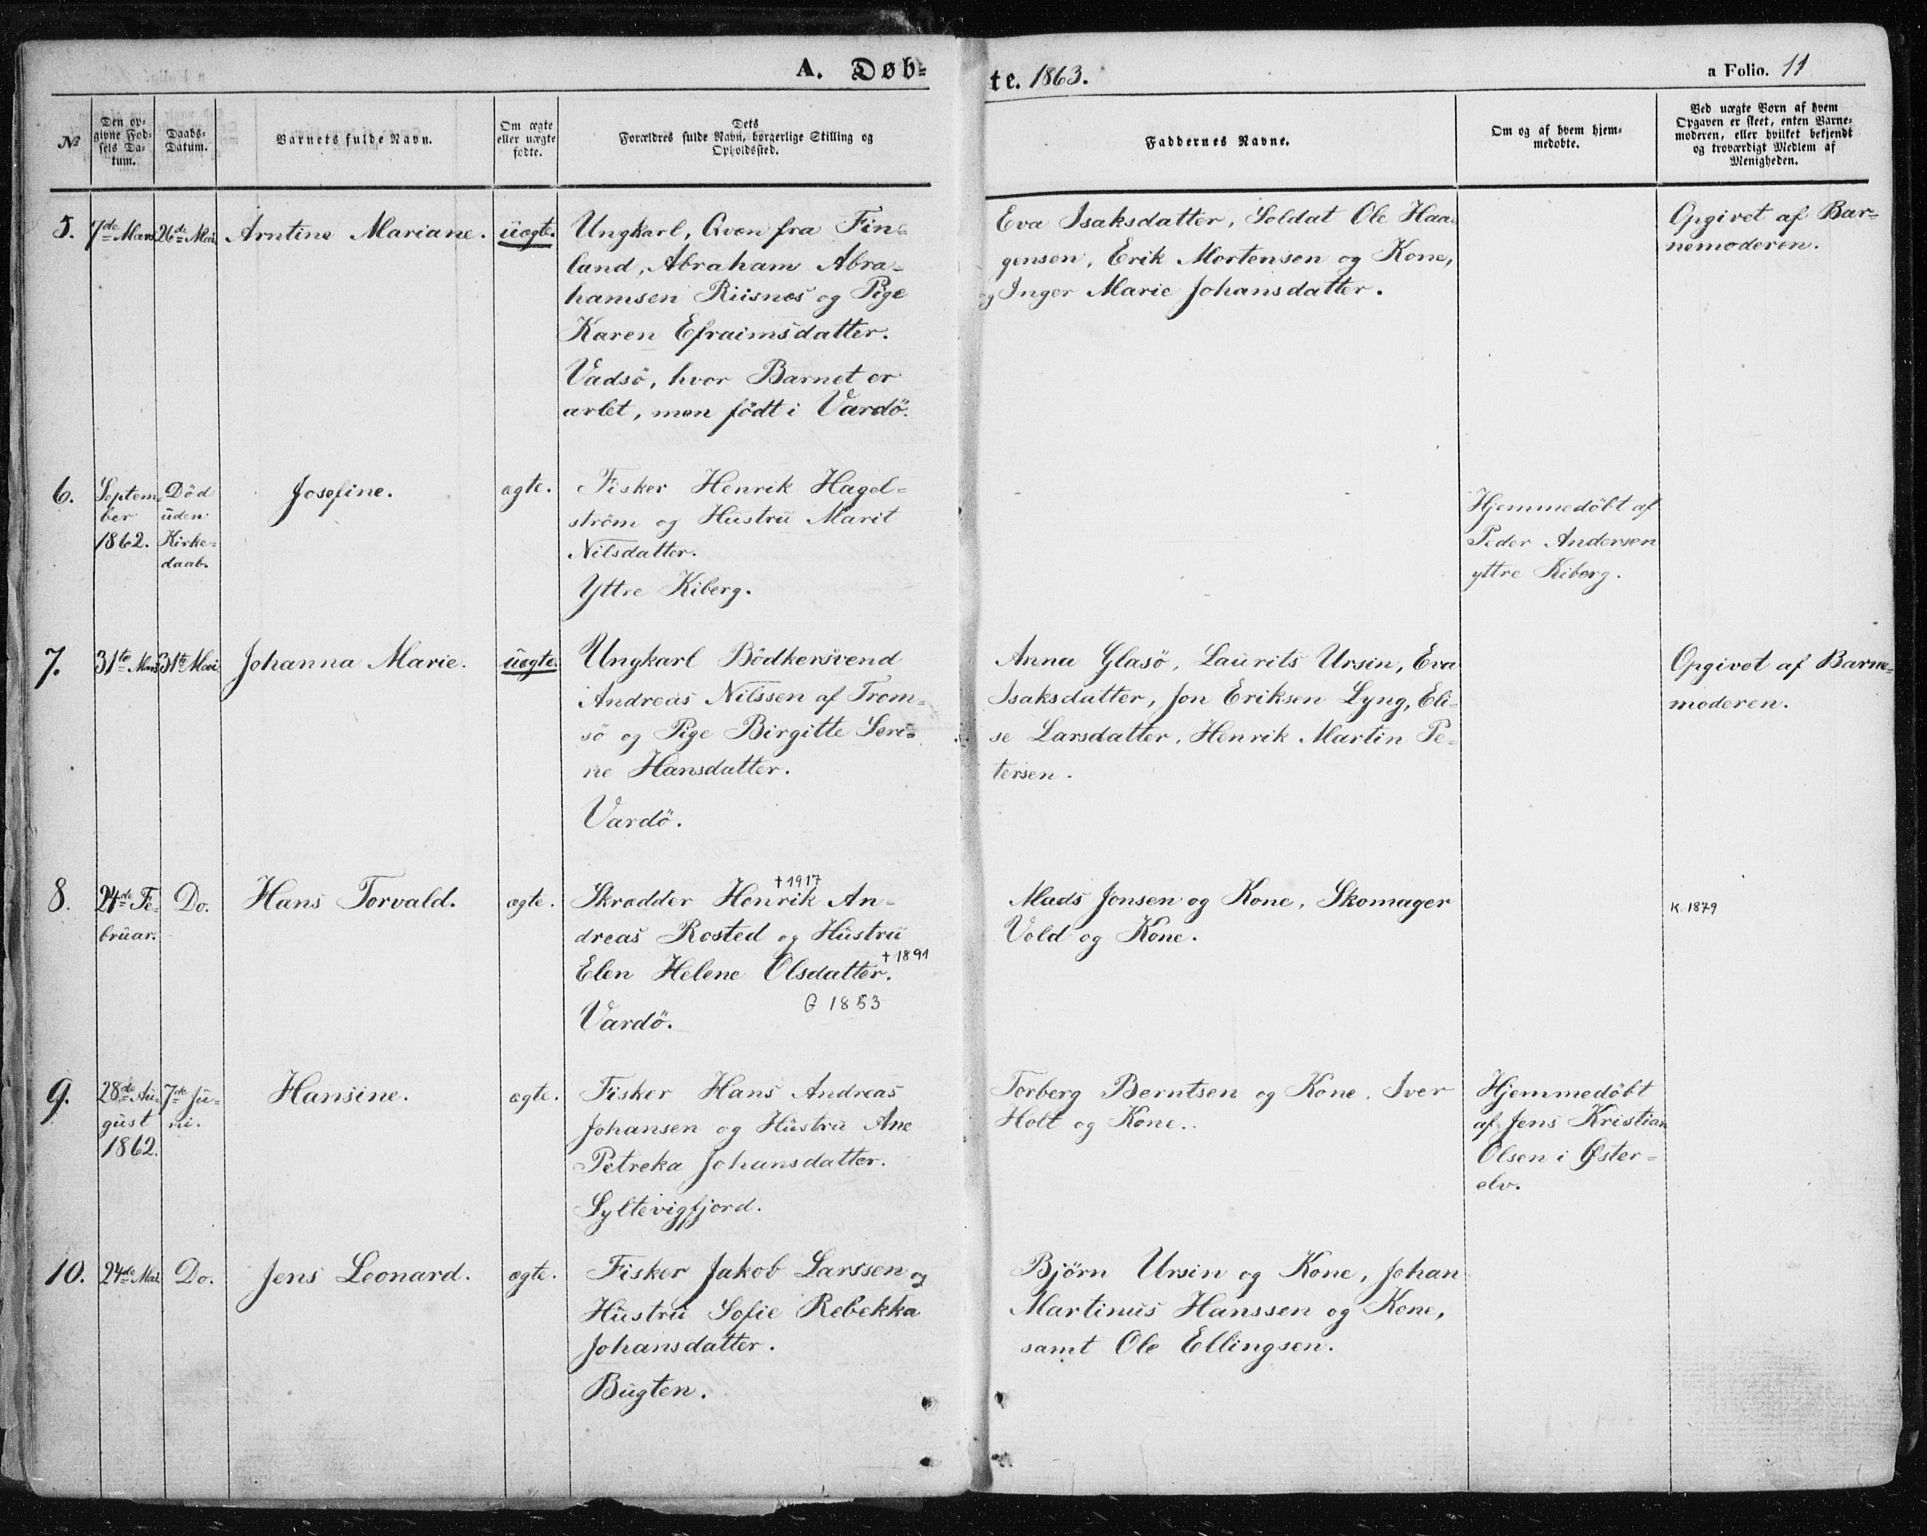 A. Døbte. 1863.
a Folio. 11
№
Den opgivne Fødsels Datum.
Daabs-Datum.
Barnets fulde Navn.
Om ægte eller uægte fødte.
Dets Forældres fulde Navn, borgerlige Stilling og Opholdssted.
Faddernes Navne.
Om og af hvem hjemmedøbte.
Ved uægte Børn af hvem Opgaven er skeet, enten Barnemoderen, eller hvilket bekjendt og troværdigt Medlem af Menigheden.
5. 7de Mars 26de Mai Arntine Mariane. uægte.
Ungkarl, Qvæn fra Fin-
land, Abraham Abra-
hamsen Riisnes og Pige
Karen Efraimsdatter.
Vadsö, hvor Barnet er
avlet, men födt i Vardö.
Eva Isaksdatter, Soldat Ole Haa-
gensen, Erik Mortensen og Kone,
og Inger Marie Johansdatter.
Opgivet af Bar-
nemoderen.
6. Septem-
ber
1862.
Död
uden
Kirke-
daab.
Josefine. ægte.
Fisker Henrik Hagel-
ström og Hustru Marit
Nilsdatter.
Yttre Kiberg.
Hjemmedöbt af
Peder Andersen
yttre Kiberg.
7. 31te Mars 31te Mai Johanna Marie. uægte.
Ungkarl Bödkersvend
Andreas Nilssen af Trom-
sö og Pige Birgitte Seri-
ne Hansdatter.
Vardö.
Anna Glasö, Laurits Ursin, Eva
Isaksdatter, Jon Eriksen Lyng, Eli-
se Larsdatter, Henrik Martin Pe-
tersen.
Opgivet af Barne-
moderen.
8. 24de Fe-
bruar.
Do. Hans Torvald. ægte.
† 1917
Skrædder Henrik An-
dreas Rosted og Hustru
† 1891
Elen Helene Olsdatter.
G 1853
Vardö.
Mads Jonsen og Kone, Skomager
Vold og Kone.
K. 1879
9. 28de Au-
gust
1862.
7de Ju-
ni.
Hansine. ægte.
Fisker Hans Andreas
Johansen og Hustru Ane
Petreka Johansdatter.
Syltevigfjord.
Torberg Berntsen og Kone, Iver
Holt og Kone.
Hjemmedöbt
af Jens Kristian
Olsen i Øster-
elv.
10. 24de Mai Do. Jens Leonard. ægte.
Fisker Jakob Larssen og
Hustru Sofie Rebekka
Johansdatter.
Bugten.
Bjørn Ursin og Kone, Johan
Martinus Hanssen og Kone,
samt Ole Ellingsen.